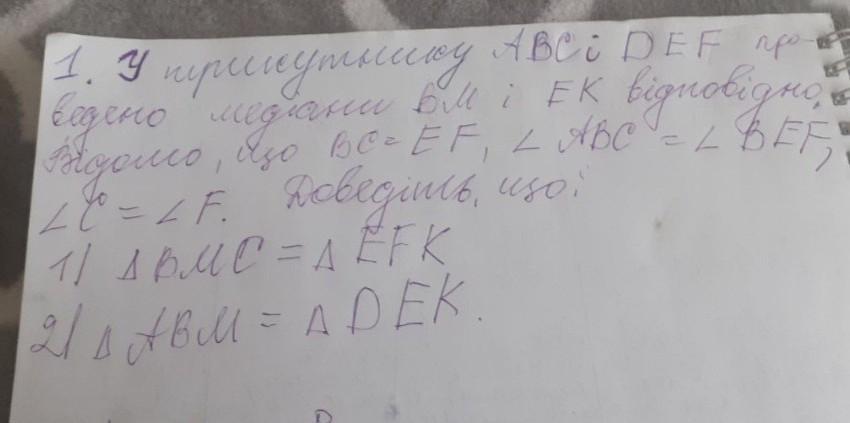 1. У трикутнику ABC і DEF про-
ведено медіани BM і EK відповідно.
Відомо, що BC = EF, ∠ ABC = ∠ BEF,
∠C = ∠F. Доведіть, що:
1) Δ BMC = Δ EFK
2) Δ ABM = Δ DEK.